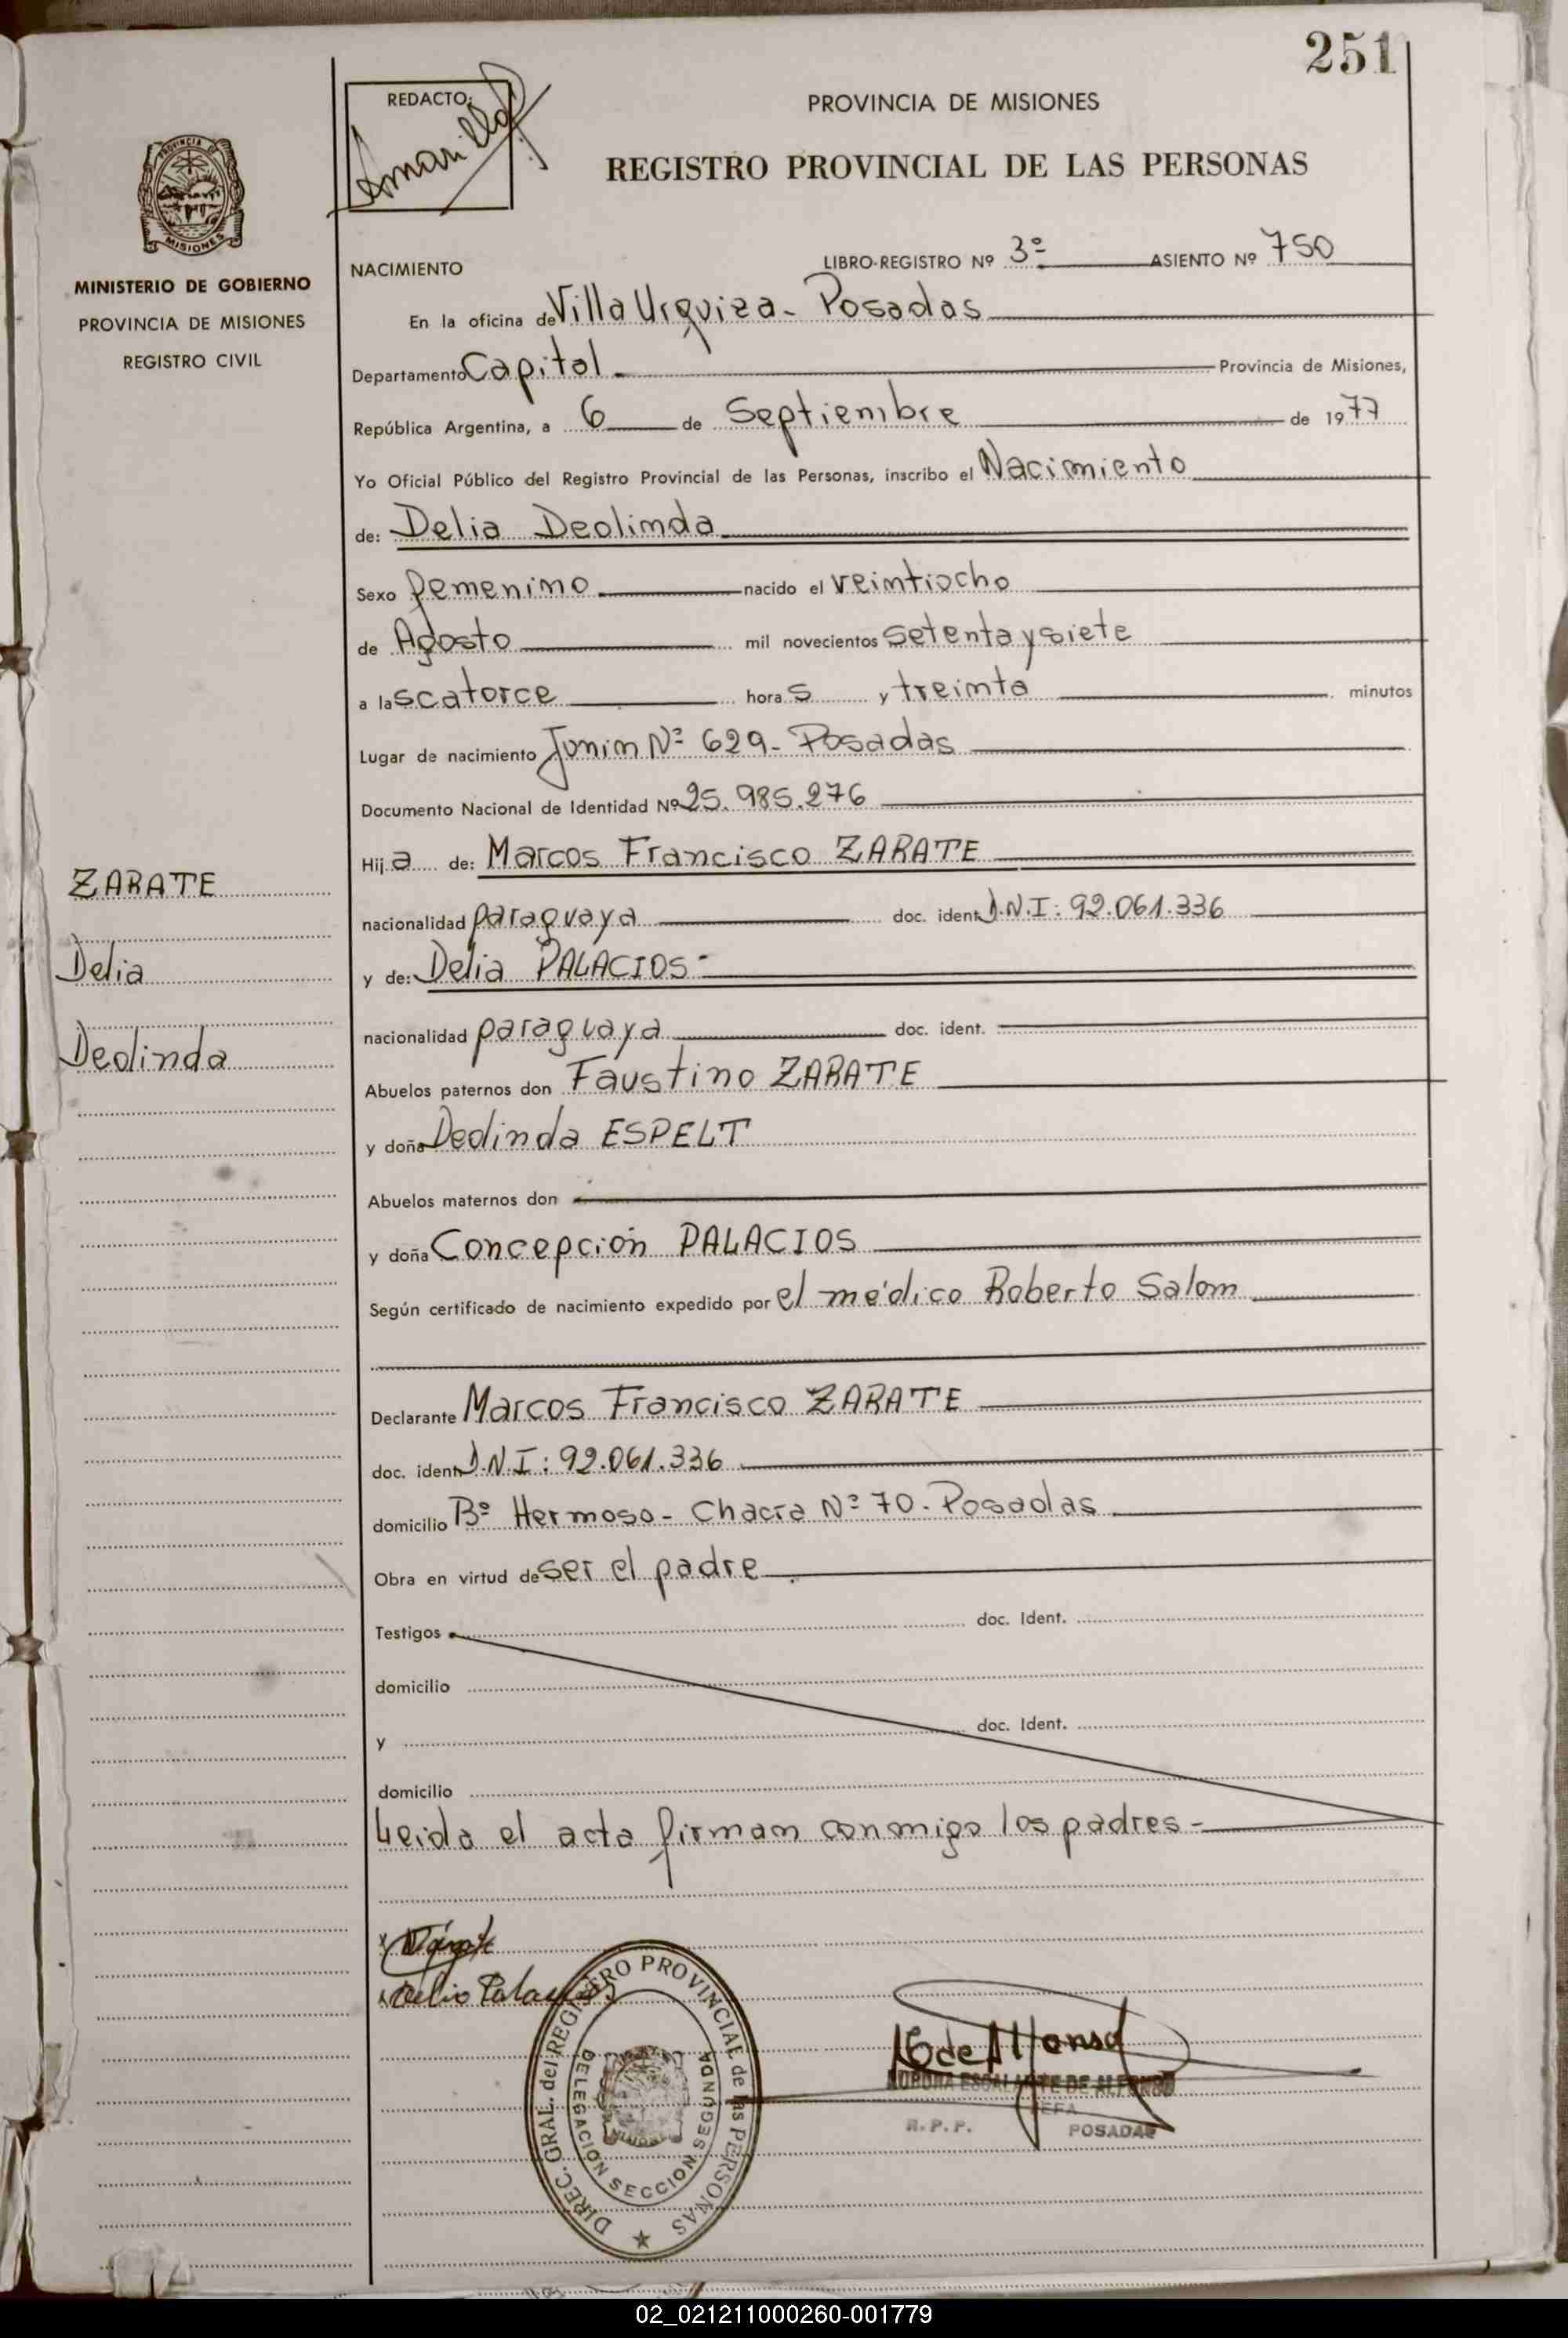 251
REDACTO:
Amarilla
PROVINCIA DE MISIONES
REGISTRO PROVINCIAL DE LAS PERSONAS
PROVINCIA DE
MISIONES
MINISTERIO DE GOBIERNO
PROVINCIA DE MISIONES
REGISTRO CIVIL
NACIMIENTO
LIBRO-REGISTRO Nº 3º ASIENTO Nº 750
En la oficina de Villa Urquiza - Posadas
Departamento Capital Provincia de Misiones,
República Argentina, a 6 de Septiembre de 1977
Yo Oficial Público del Registro Provincial de las Personas, inscribo el Nacimiento
de: Delia Deolinda
Sexo femenino nacido el veintiocho
de Agosto mil novecientos setenta y siete
a las catorce horas y treinta minutos
Lugar de nacimiento Junin Nº 629 - Posadas
Documento Nacional de Identidad Nº 25.985.276
Hija de: Marcos Francisco ZARATE
ZARATE
nacionalidad paraguaya doc. ident. D.N.I: 92.061.336
Delia
y de: Delia PALACIOS -
Deolinda
nacionalidad paraguaya doc. ident.
Abuelos paternos don Faustino ZARATE
y doña Deolinda ESPELT
Abuelos maternos don
y doña Concepción PALACIOS
Según certificado de nacimiento expedido por el médico Roberto Salom
Declarante Marcos Francisco ZARATE
doc. ident. D.N.I: 92.061.336
domicilio Bº Hermoso - Chacra Nº 70 - Posadas
Obra en virtud de ser el padre
Testigos doc. Ident.
domicilio
y doc. Ident.
domicilio
Leida el acta firman conmigo los padres -
x Zárate
x Delia Palacios
DIREC. GRAL. del REGISTRO PROVINCIAL de las PERSONAS
DELEGACION SECCION SEGUNDA
AE de Alfonso
AURORA ESCALANTE DE ALFONSO
JEFA
R.P.P. POSADAS
02_021211000260-001779